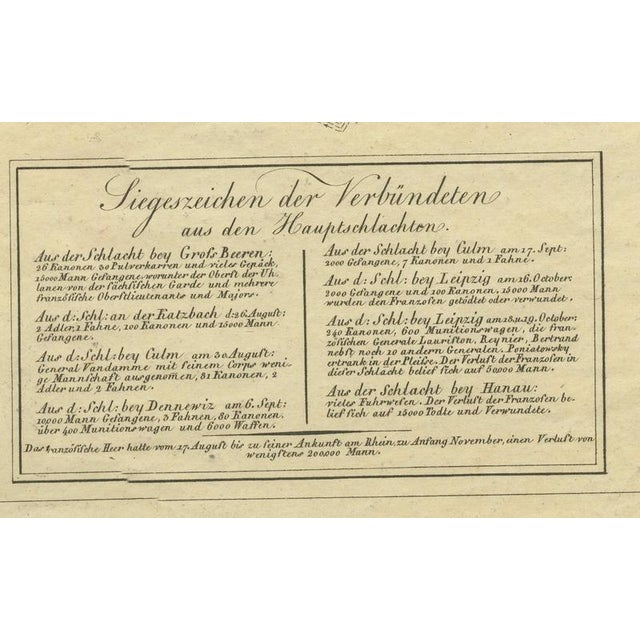 Siegeszeichen der Verbündeten
aus den Hauptschlachten.
Aus der Schlacht bey Groſs Beeren:
26 Kanonen 30 Pulverkarren und vieles Gepäck,
15000 Mann Gefangene, worunter der Oberst der Uh-
lanen von der sächſiſchen Garde und mehrere
franzöſiſche Oberſtlieutenants und Majors.
Aus d: Schl: an der Katzbach d: 26 August:
2 Adler, 1 Fahne, 100 Kanonen und 15000 Mann
Gefangene.
Aus d: Schl: bey Culm am 30 August:
General Vandamme mit seinem Corps weni-
ge Mannschaft ausgenom̄en, 81 Kanonen, 2
Adler und 2 Fahnen.
Aus d: Schl: bey Dennewiz am 6. Sept:
10000 Mann Gefangene, 3 Fahnen, 80 Kanonen
über 400 Munitionswagen und 6000 Waffen.
Aus der Schlacht bey Culm am 17. Sept:
2000 Gefangene, 7 Kanonen und 1 Fahne.
Aus d: Schl: bey Leipzig am 16. October:
2000 Gefangene und 100 Kanonen. 15000 Mann
wurden den Franzoſen getödtet oder verwundet.
Aus d: Schl: bey Leipzig am 18. u. 19. October:
240 Kanonen, 600 Munitionswagen, die fran-
zöſiſchen Generale Lauriſton, Reynier, Bertrand
nebſt noch 10 andern Generalen. Poniatowsky
ertrank in der Pleiſse. Der Verluſt der Franzoſen in
dieſer Schlacht belief ſich auf 50,000 Mann.
Aus der Schlacht bey Hanau:
vieles Fuhrweſen. Der Verluſt der Franzoſen be-
lief ſich auf 15000 Todte und Verwundete.
Das franzöſiſche Heer hatte vom 17. August bis zu ſeiner Ankunft am Rhein, zu Anfang November, einen Verluſt von
wenigſtens 200,000 Mann.